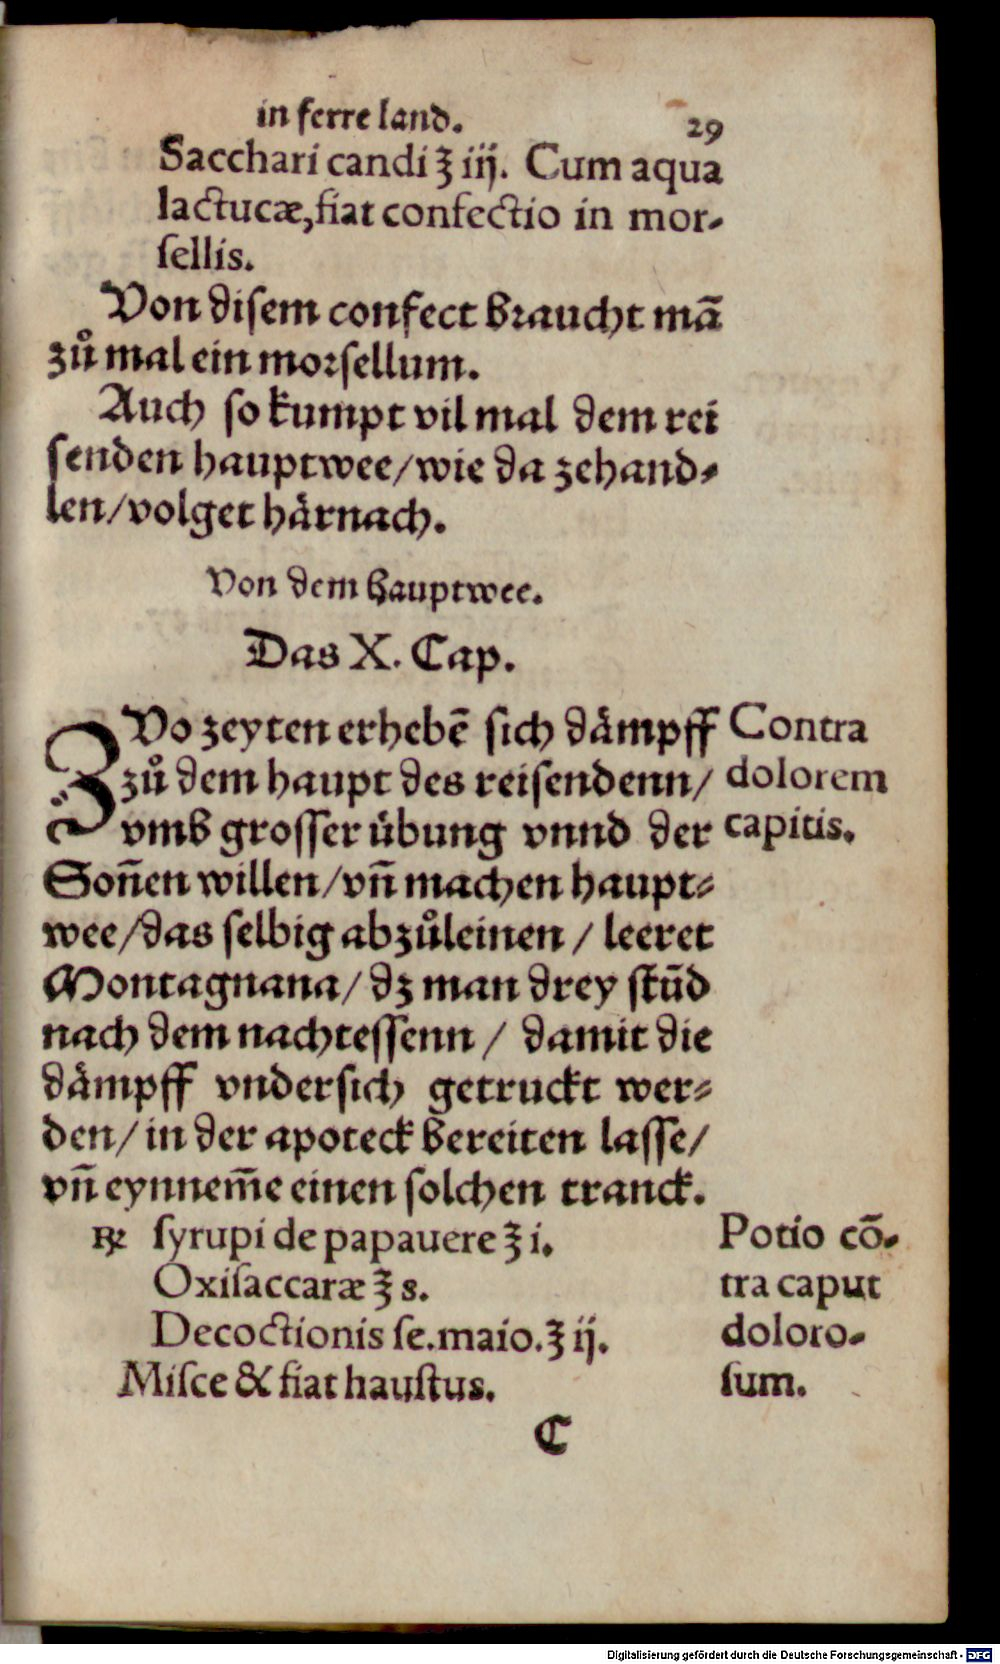 in ferre land. 29
Sacchari candi ʒ iij. Cum aqua
lactucæ, fiat confectio in mor-
ſellis.
Von diſem confect braucht mã
zů mal ein morſellum.
Auch ſo kumpt vil mal dem rei
ſenden hauptwee/wie da zehand-
len/volget härnach.
Von dem hauptwee.
Das X. Cap.
ZVo zeyten erhebẽ ſich dämpff
zů dem haupt des reiſendenn/
vmb groſſer übung vnnd der
Soñen willen/vñ machen haupt-
wee/das ſelbig abzůleinen / leeret
Montagnana/ dz man drey ſtũd
nach dem nachteſſenn / damit die
dämpff vnderſich getruckt wer-
den/ in der apoteck bereiten laſſe/
vñ eynnem̃e einen ſolchen tranck.
Contra
dolorem
capitis.
℞ ſyrupi de papauere ℥ i.
Oxiſaccaræ ℥ s.
Decoctionis ſe.maio.℥ ij.
Miſce & fiat hauſtus.
Potio cõ-
tra caput
doloro-
ſum.
C
Digitalisierung gefördert durch die Deutsche Forschungsgemeinschaft - DFG